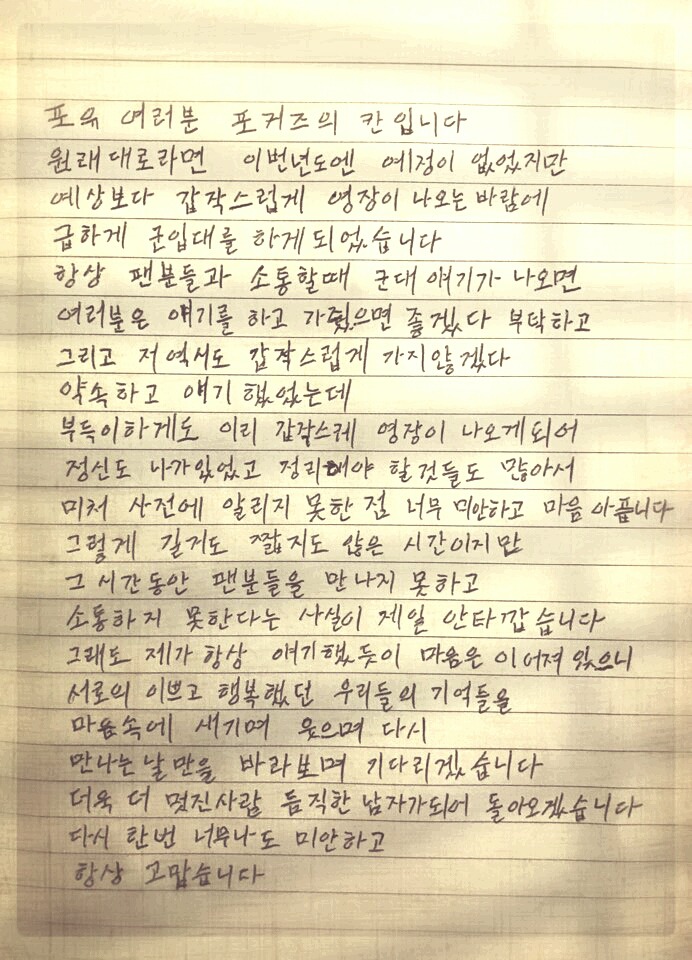 포유 여러분 포커즈의 칸입니다
원래대로라면 이번년도엔 예정이 없었지만
예상보다 갑작스럽게 영장이 나오는 바람에
급하게 군입대를 하게 되었습니다
항상 팬분들과 소통할때 군대 얘기가 나오면
여러분은 얘기를 하고 가줬으면 좋겠다 부탁하고
그리고 저 역시도 갑작스럽게 가지않겠다
약속하고 얘기했었는데
부득이하게도 이리 갑작스레 영장이 나오게되어
정신도 나가있었고 정리해야 할것들도 많아서
미처 사전에 알리지 못한 점 너무 미안하고 마음 아픕니다
그렇게 길거도 짧지도 않은 시간이지만
그 시간동안 팬분들을 만나지 못하고
소통하지 못한다는 사실이 제일 안타깝습니다
그래도 제가 항상 얘기했듯이 마음은 이어져 있으니
서로의 이쁘고 행복했던 우리들의 기억들을
마음속에 새기며 웃으며 다시
만나는날만을 바라보며 기다리겠습니다
더욱 더 멋진사람 듬직한 남자가되어 돌아오겠습니다
다시 한번 너무나도 미안하고
항상 고맙습니다